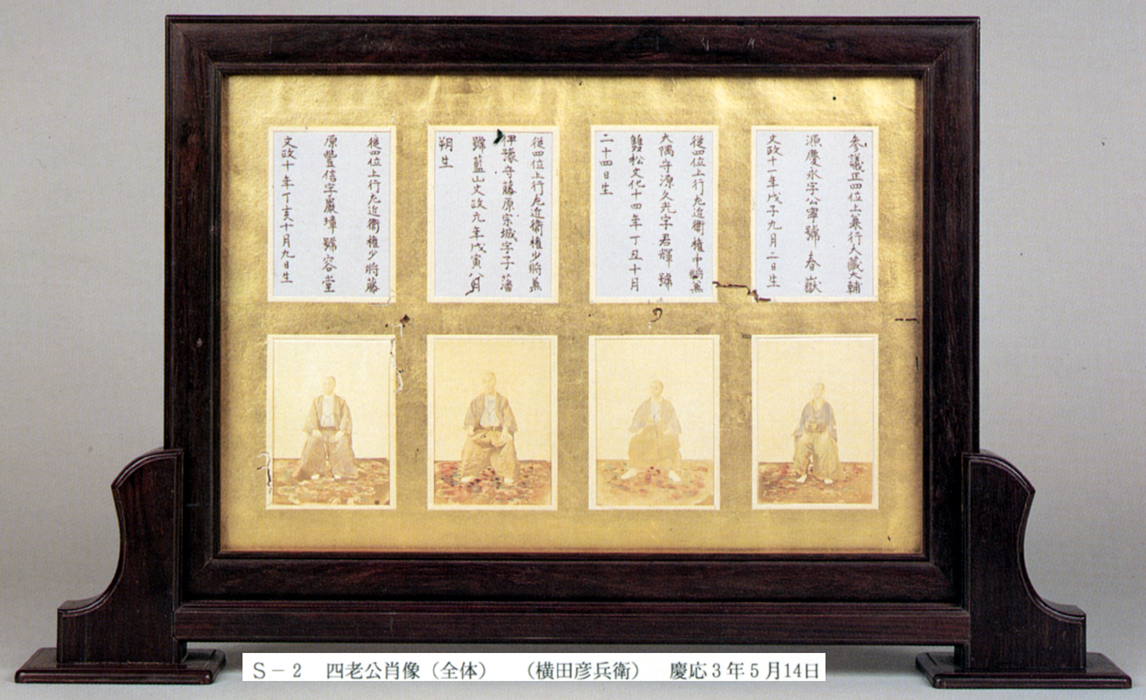 参議正四位上兼行大蔵大輔
源慶永字公寧號春嶽
文政十一年戊子九月二日生
従四位上行左近衛権中将兼
大隅守源久光字君輝號
雙松文化十四年丁丑十月
二十四日生
従四位上行左近衛権少将兼
伊豫守藤原宗城字子藩
號藍山文政元年戊寅八月
朔生
従四位上行左近衛権少将藤
原豊信字嚴璋號容堂
文政十年丁亥十月九日生
S－2 四老公肖像（全体） （横田彦兵衛） 慶応3年5月14日